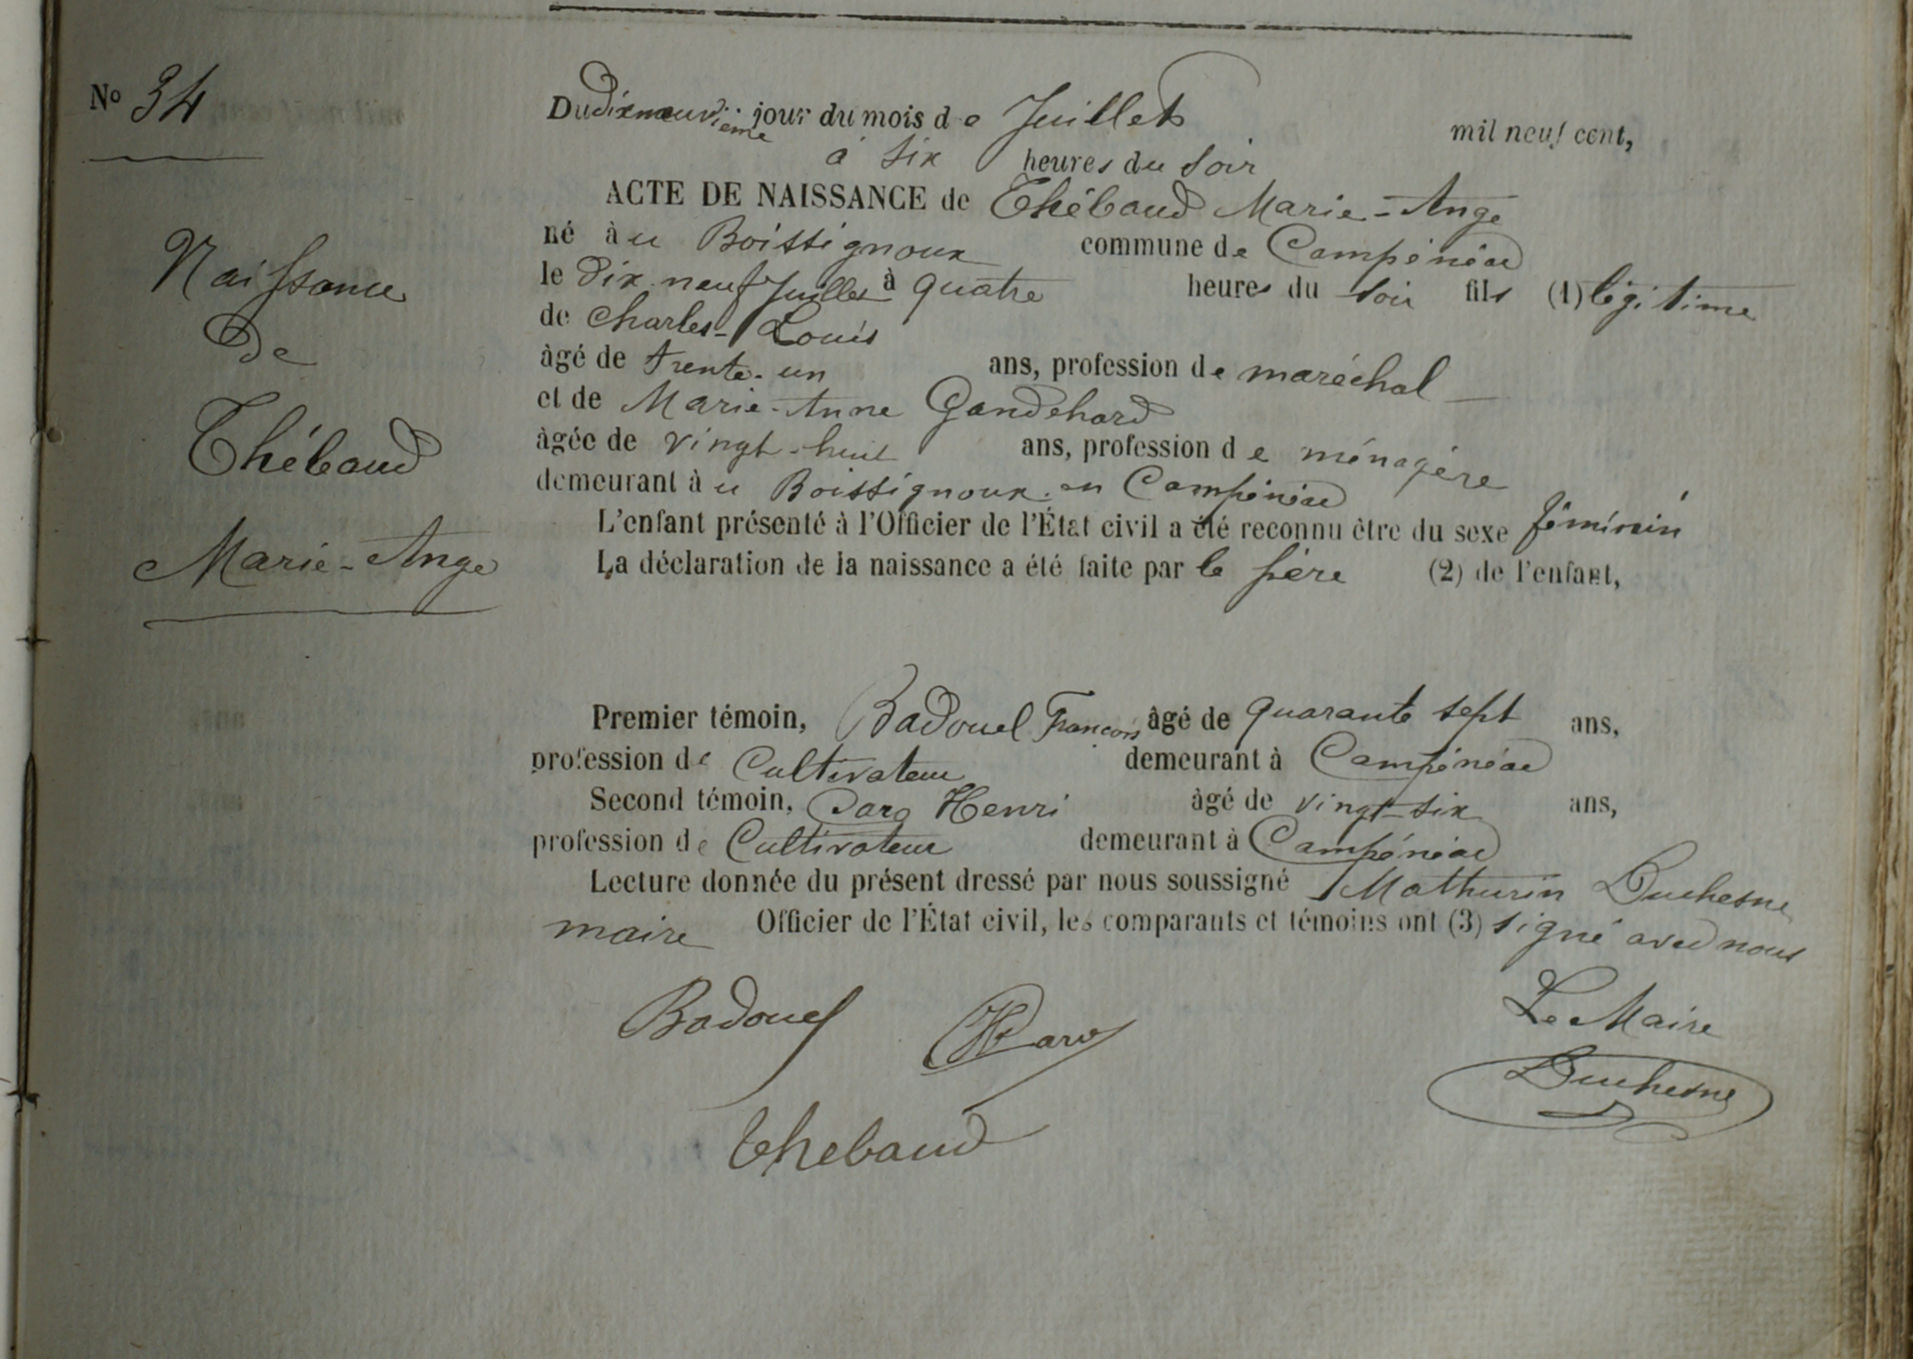 No 34
Du dixneuvième jour du mois de Juillet mil neuf cent,
à six heures du soir
ACTE DE NAISSANCE de Thébaud Marie-Ange
né àu Boissignoux commune de Campénéac
le dix neuf Juillet à quatre heures du soir fils (1) légitime
de Charles-Louis
âgé de trente-un ans, profession de maréchal
et de Marie-Anne Gandehard
âgée de vingt-huit ans, profession de ménagère
demeurant àu Boissignoux en Campénéac
L'enfant présenté à l'Officier de l'État civil a été reconnu être du sexe féminin
La déclaration de la naissance a été faite par le père (2) de l'enfant,
Naissance
de
Thébaud
Marie-Ange
Premier témoin, Badouel François âgé de quarante sept ans,
profession de Cultivateur demeurant à Campénéac
Second témoin, Henri âgé de vingt-six ans,
profession de Cultivateur demeurant à Campénéac
Lecture donnée du présent dressé par nous soussigné Mathurin Duchesne
maire Officier de l'État civil, les comparants et témoins ont (3) signé avec nous
Badouel
Le Maire
Duchesne
Thebaud